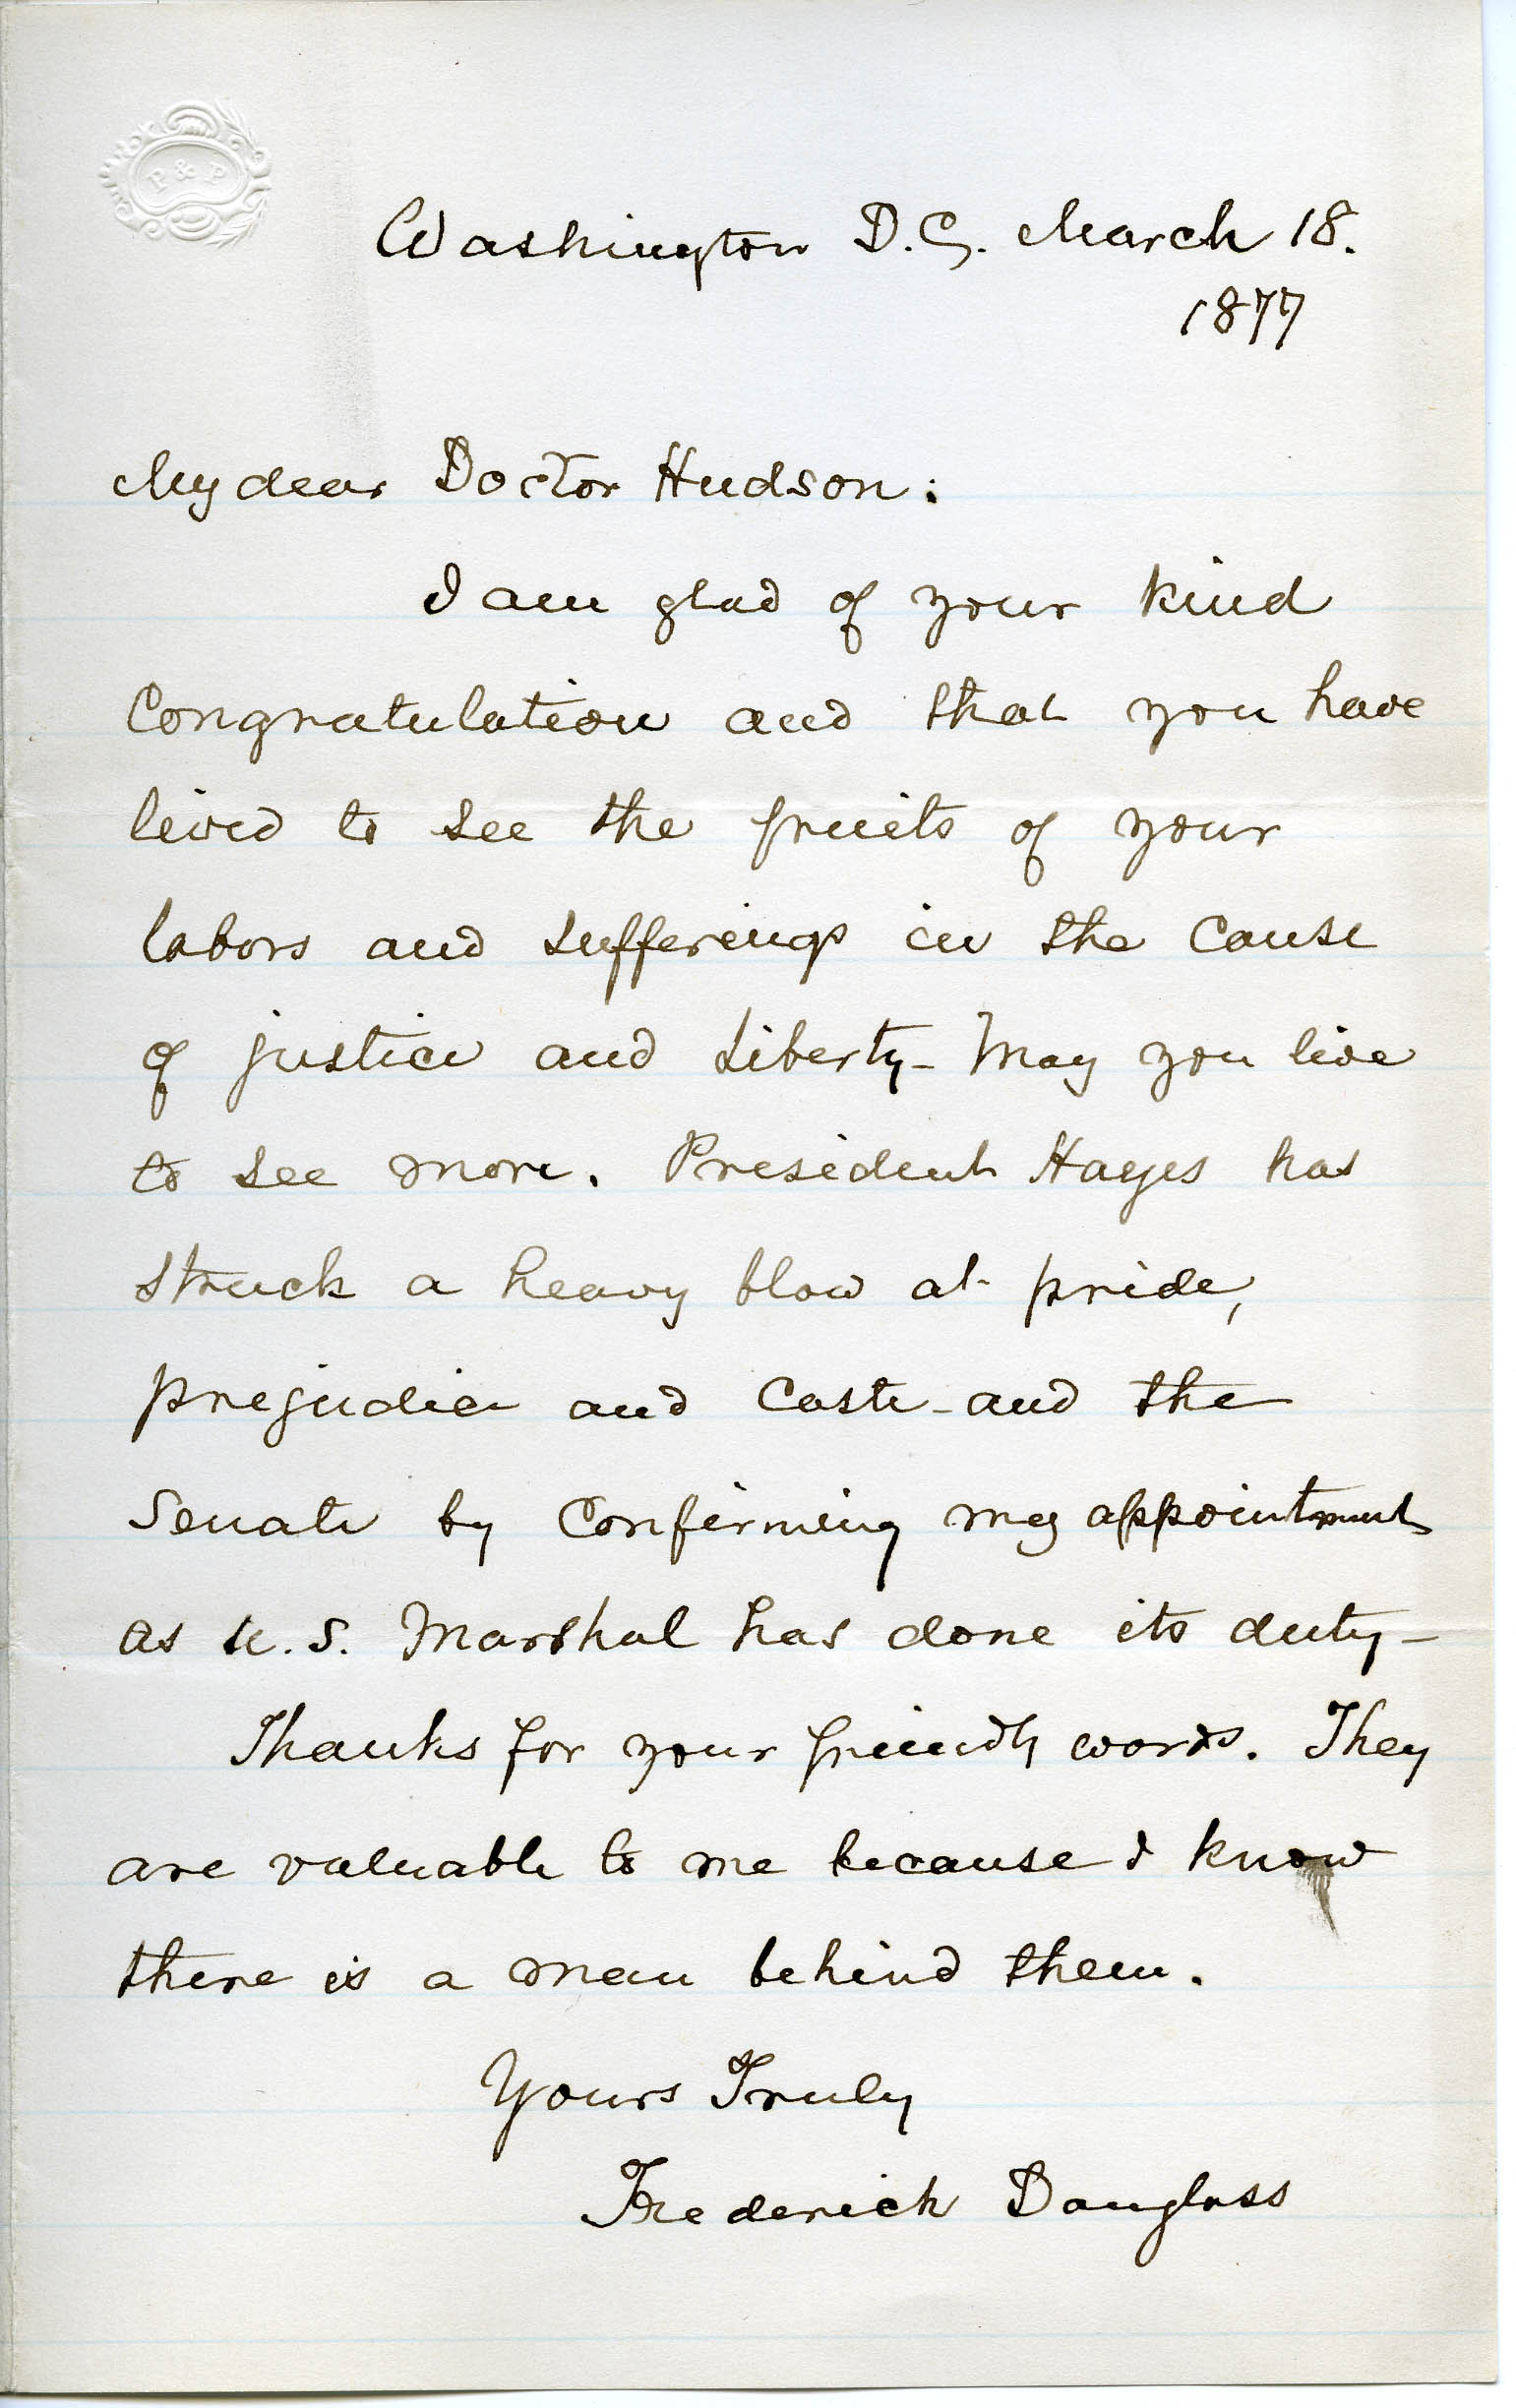 P & P
Washington D.C. March 18.
1877
My dear Doctor Hudson:
I am glad of your kind
Congratulation and that you have
lived to see the fruits of your
labors and sufferings in the Cause
of justice and Liberty - May you live
to see more. President Hayes has
struck a heavy blow at pride,
prejudice and Caste - and the
Senate by Confirming my appointment
as U.S. Marshal has done its duty -
Thanks for your friendly words. They
are valuable to me because I know
there is a man behind them.
Yours Truly
Frederick Douglass